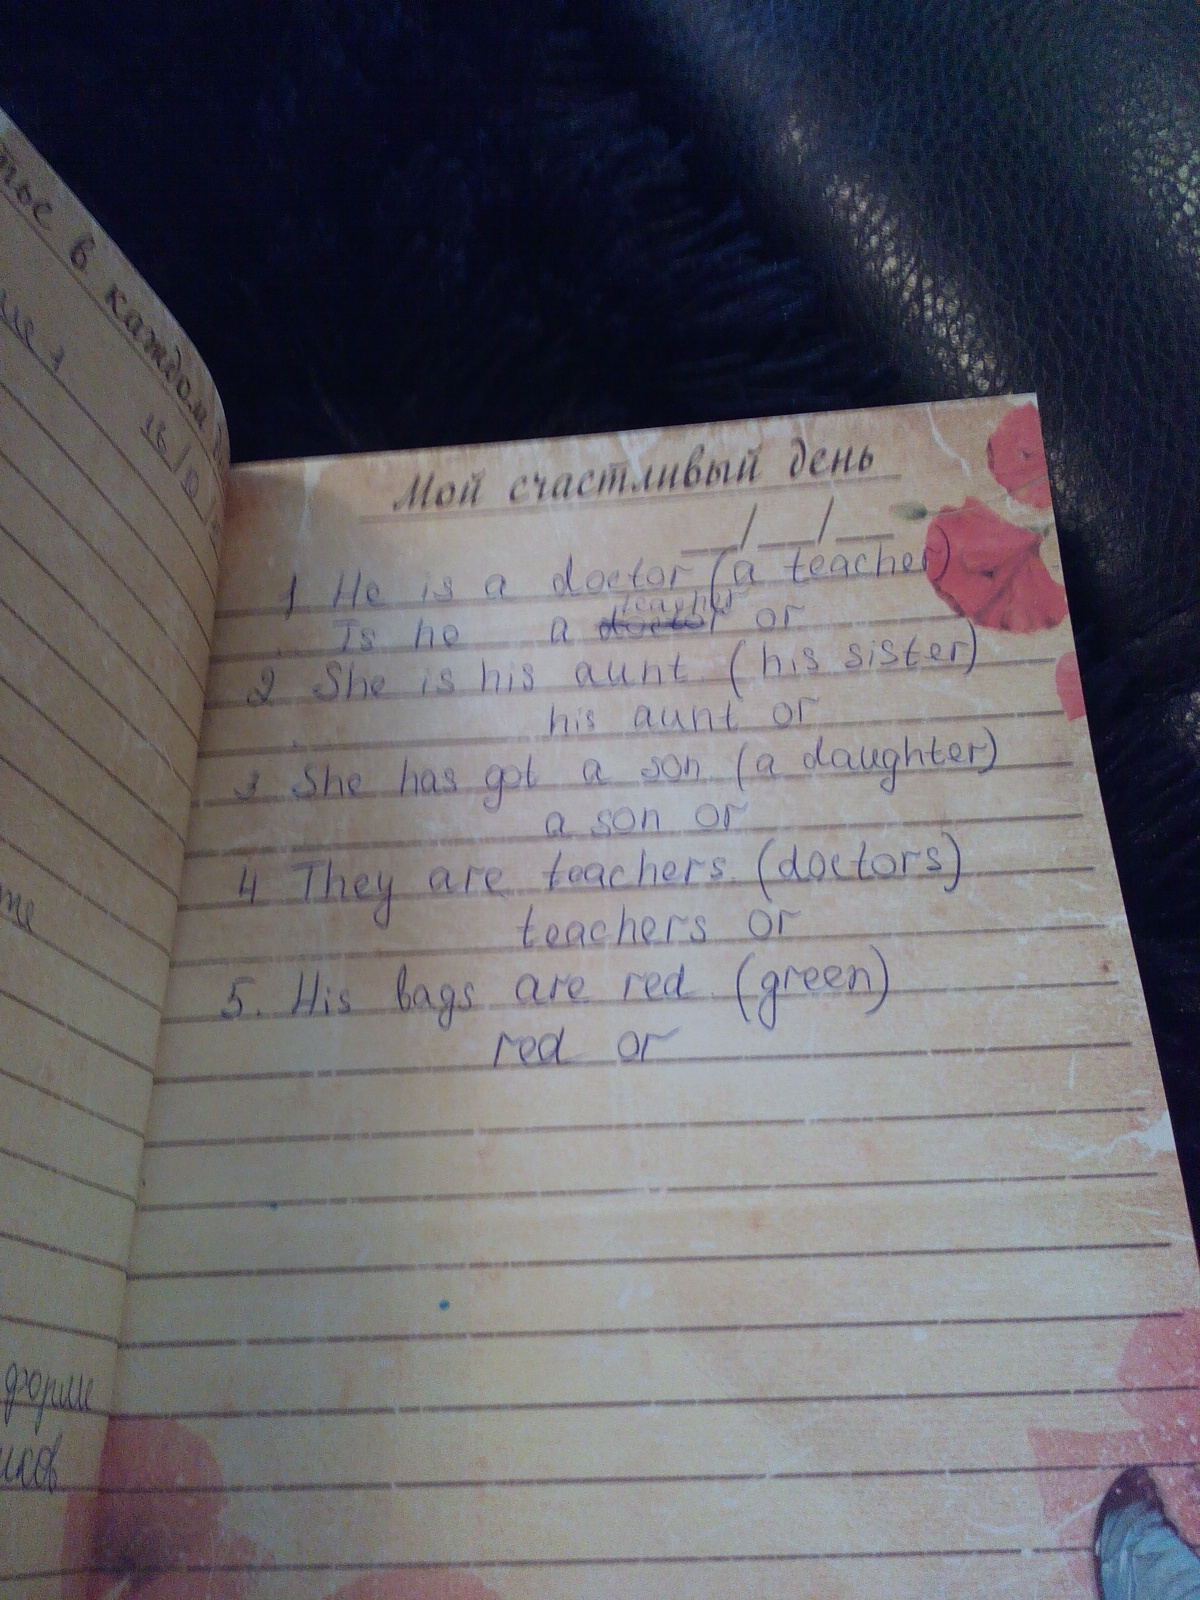 в каждом
18/10/
форме
Мой счастливый день
__/__/__
1 He is a doctor (a teacher)
teacher
Is he a doctor or
2 She is his aunt. (his sister)
his aunt or
3 She has got a son. (a daughter)
a son or
4 They are teachers. (doctors)
teachers or
5. His bags are red. (green)
red or